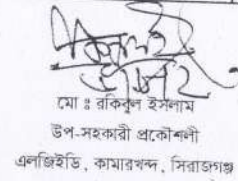 মো ঃ রকিবুল ইসলাম
উপ-সহকারী প্রকৌশলী
এলজিইডি, কামারখন্দ, সিরাজগঞ্জ